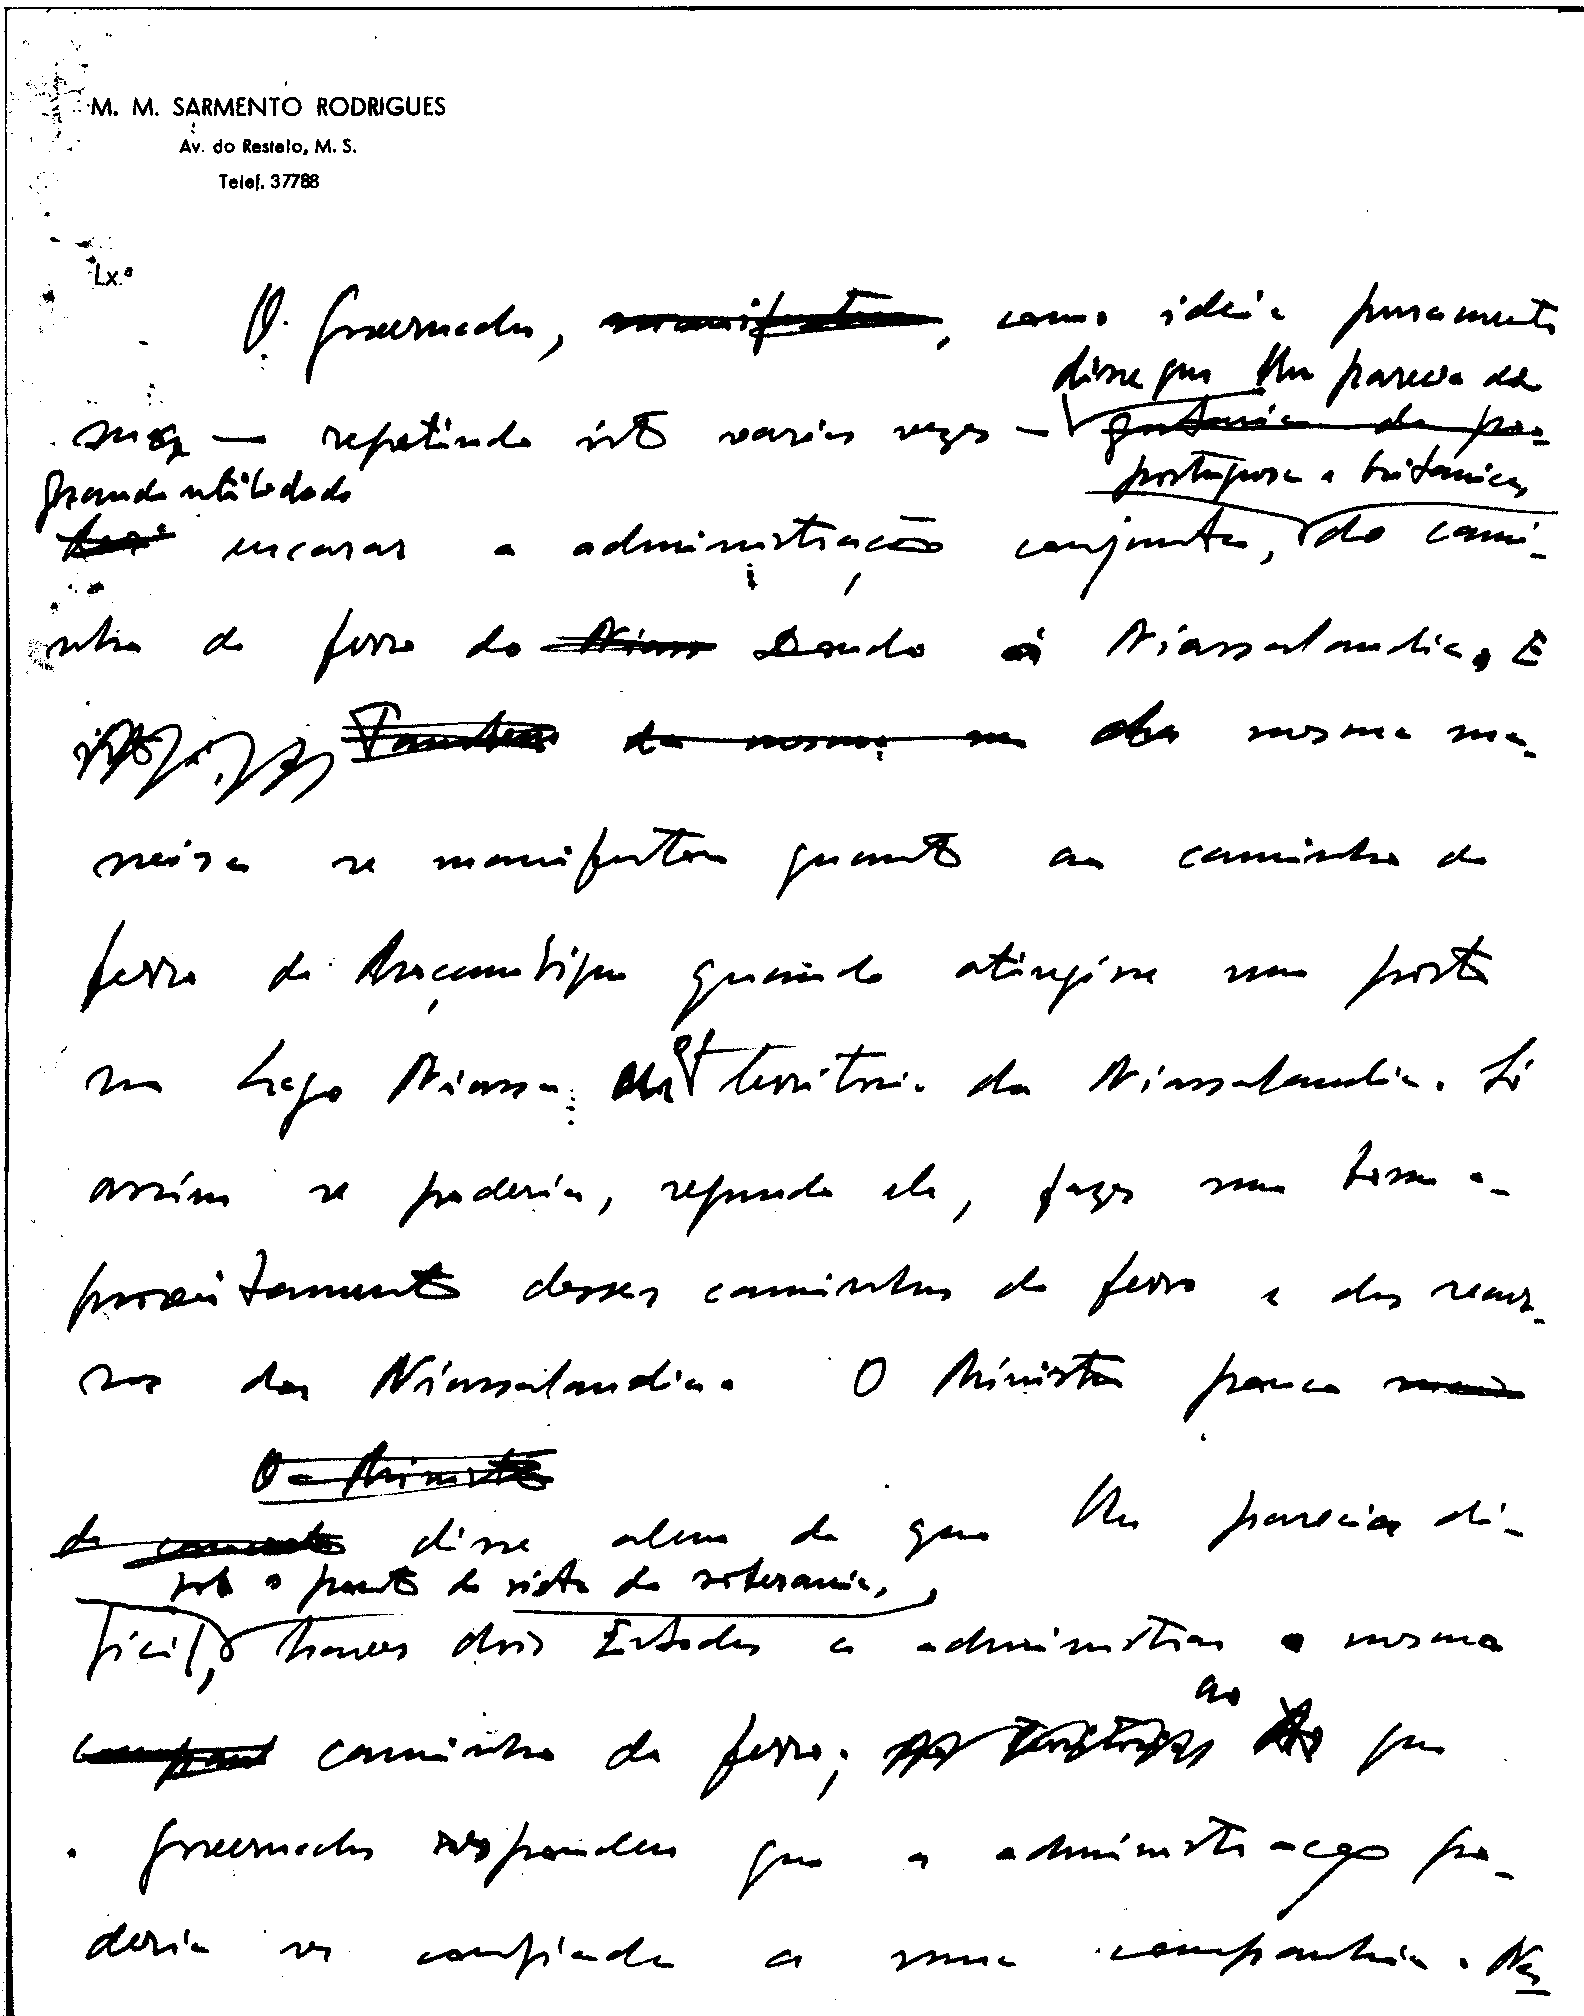 M. M. SARMENTO RODRIGUES
Av. do Restelo, M. S.
Telef. 37788
Lx.ª
O Governador, manifestou, como ideia puramente
disse que lhe parecia de
sua — repetindo isto varias vezes — gostaria de po-
grande utilidade portuguesa e britanica
encarar a administração conjunta, do cami-
nho de ferro do Niass Dondo á Niassalandia. E
Tambem da mesma ma da mesma ma-
neira se manifestou quanto ao caminho de
ferro de Moçambique quando atingisse um porto
no Lago Niassa em territorio da Niassalandia. Só
assim se poderia, segundo ele, fazer um bom a-
proveitamento desses caminhos de ferro e dos recur-
sos da Niassalandia. O Ministro pouco mais
O Ministro
de concreto disse alem de que lhe parecia di-
sob o ponto de vista de soberania,
ficil, haver dois Estados a administrar o mesmo
ao
caminho de ferro; que
o Governador respondeu que a administração po-
deria ser confiada a uma companhia. Nes